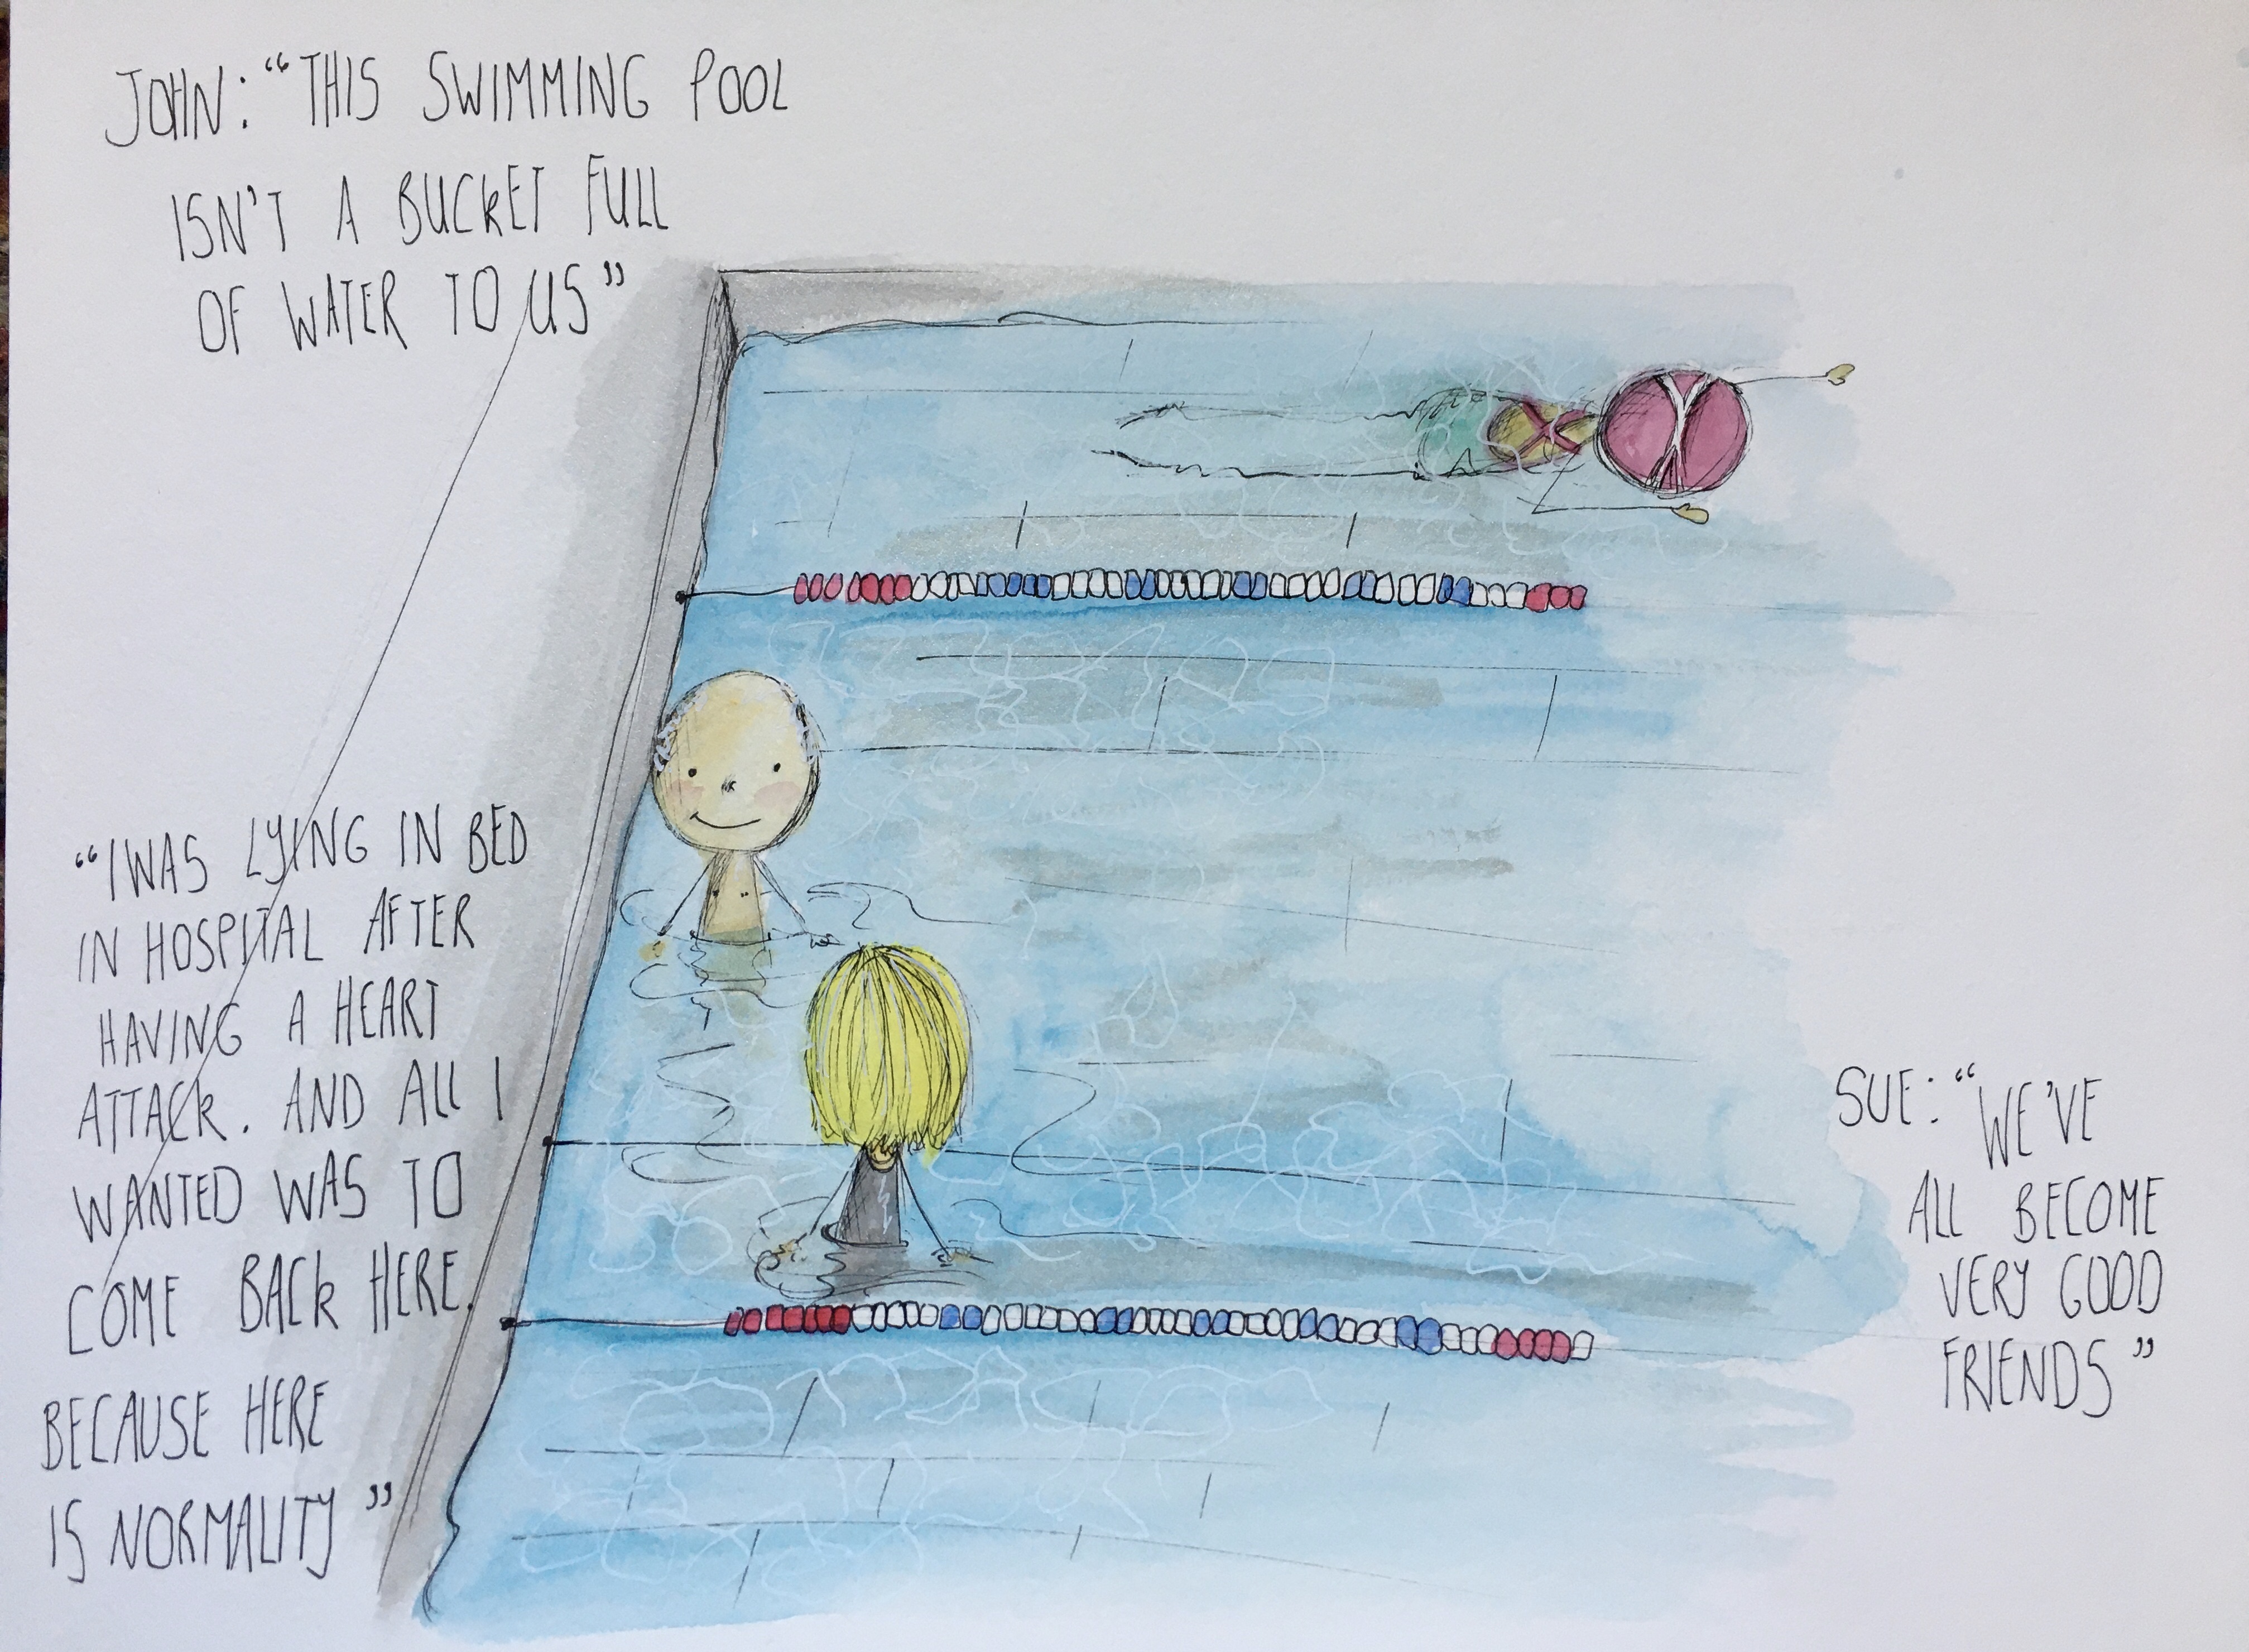 JOHN: "THIS SWIMMING POOL
ISN'T A BUCKET FULL
OF WATER TO US"
"I WAS LYING IN BED
IN HOSPITAL AFTER
HAVING A HEART
ATTACK. AND ALL I
WANTED WAS TO
COME BACK HERE.
BECAUSE HERE
IS NORMALITY"
SUE: "WE'VE
ALL BECOME
VERY GOOD
FRIENDS"